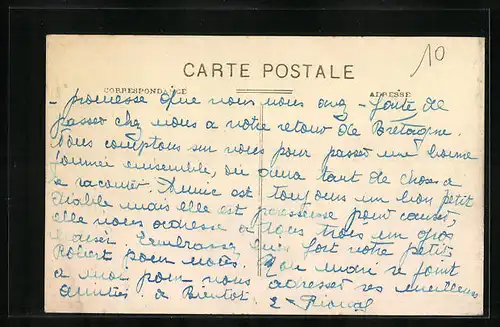 10
CARTE POSTALE
CORRESPONDANCE
ADRESSE
- promesse que vous nous avez - faite de
passer chez nous a votre retour de Bretagne.
Nous comptons sur vous pour passer une bonne
journée ensemble, on aura tant de choses à
se raconter. Annie est toujours un bon petit
diable mais elle est paresseuse pour causer,
elle vous adresse à tous trois un gros
baiser. Embrassez bien fort votre petit
Robert pour nous. Mon mari se joint
a moi pour vous adresser ses meilleures
amitiés. a Bientot.